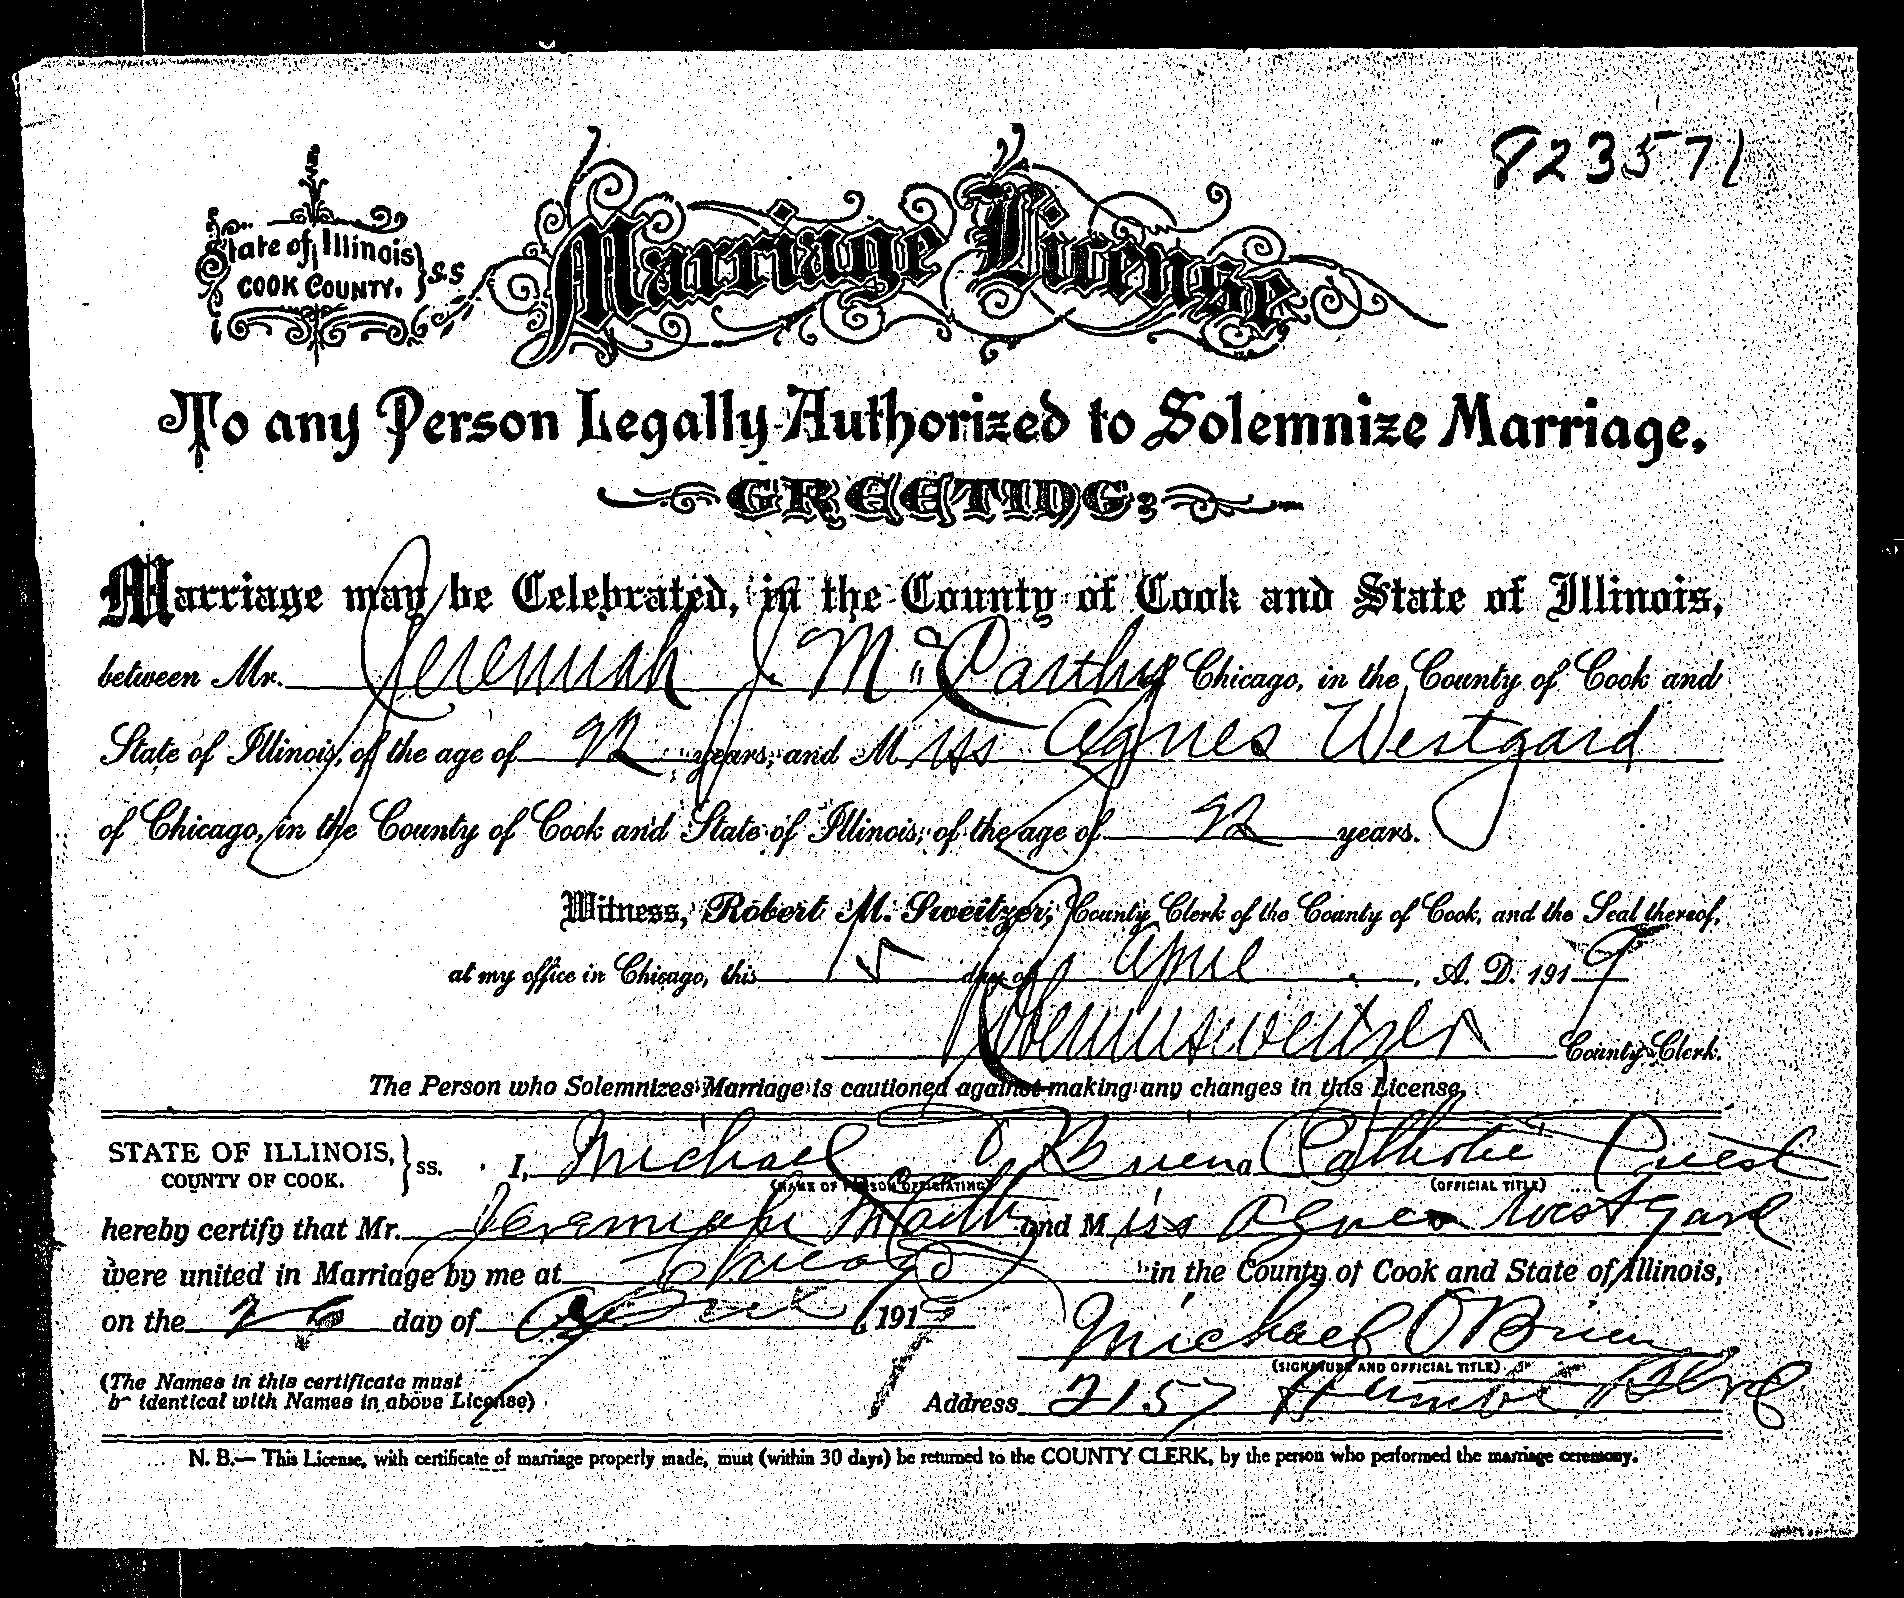 823571
State of Illinois
COOK COUNTY. } S.S
Marriage License
To any Person Legally Authorized to Solemnize Marriage.
GREETING:
Marriage may be Celebrated, in the County of Cook and State of Illinois,
between Mr. Jeremiah J. Mc Carthy Chicago, in the County of Cook and
State of Illinois, of the age of 22 years, and Miss Agnes Westgard
of Chicago, in the County of Cook and State of Illinois, of the age of 22 years.
Witness, Robert M. Sweitzer, County Clerk of the County of Cook, and the Seal thereof,
at my office in Chicago, this 15 day of April, A. D. 1919
Robert M Sweitzer County Clerk.
The Person who Solemnizes Marriage is cautioned against making any changes in this License.
STATE OF ILLINOIS, } ss. I, Michael O'Brien a Catholic Priest
COUNTY OF COOK. (NAME OF PERSON OFFICIATING) (OFFICIAL TITLE)
hereby certify that Mr. Jeremiah and Miss Agnes Westgard
were united in Marriage by me at Chicago in the County of Cook and State of Illinois,
on the 26 day of April 1919 Michael O'Brien
(SIGNATURE AND OFFICIAL TITLE)
(The Names in this certificate must
be identical with Names in above License)
Address 2157 Blvd
N. B.— This License, with certificate of marriage properly made, must (within 30 days) be returned to the COUNTY CLERK, by the person who performed the marriage ceremony.